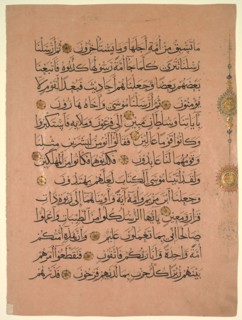 ما تسبق من أمة أجلها وما يستأخرون ثم أرسلنا
رسلنا تترى كلما جاء أمة رسولها كذبوه فأتبعنا
بعضهم بعضا وجعلناهم أحاديث فبعدا لقوم لا
يؤمنون ثم أرسلنا موسى وأخاه هارون
بآياتنا وسلطان مبين إلى فرعون وملائه فاستكبروا
وكانوا قوما عالين فقالوا أنؤمن لبشرين مثلنا
وقومهما لنا عابدون فكذبوهما فكانوا من المهلكين
ولقد آتينا موسى الكتاب لعلهم يهتدون
وجعلنا ابن مريم وأمه آية وآويناهما إلى ربوة ذات
قرار ومعين يا أيها الرسل كلوا من الطيبات واعملوا
صالحا إني بما تعملون عليم وإن هذه أمتكم
أمة واحدة وأنا ربكم فاتقون فتقطعوا أمرهم
بينهم زبرا كل حزب بما لديهم فرحون فذرهم